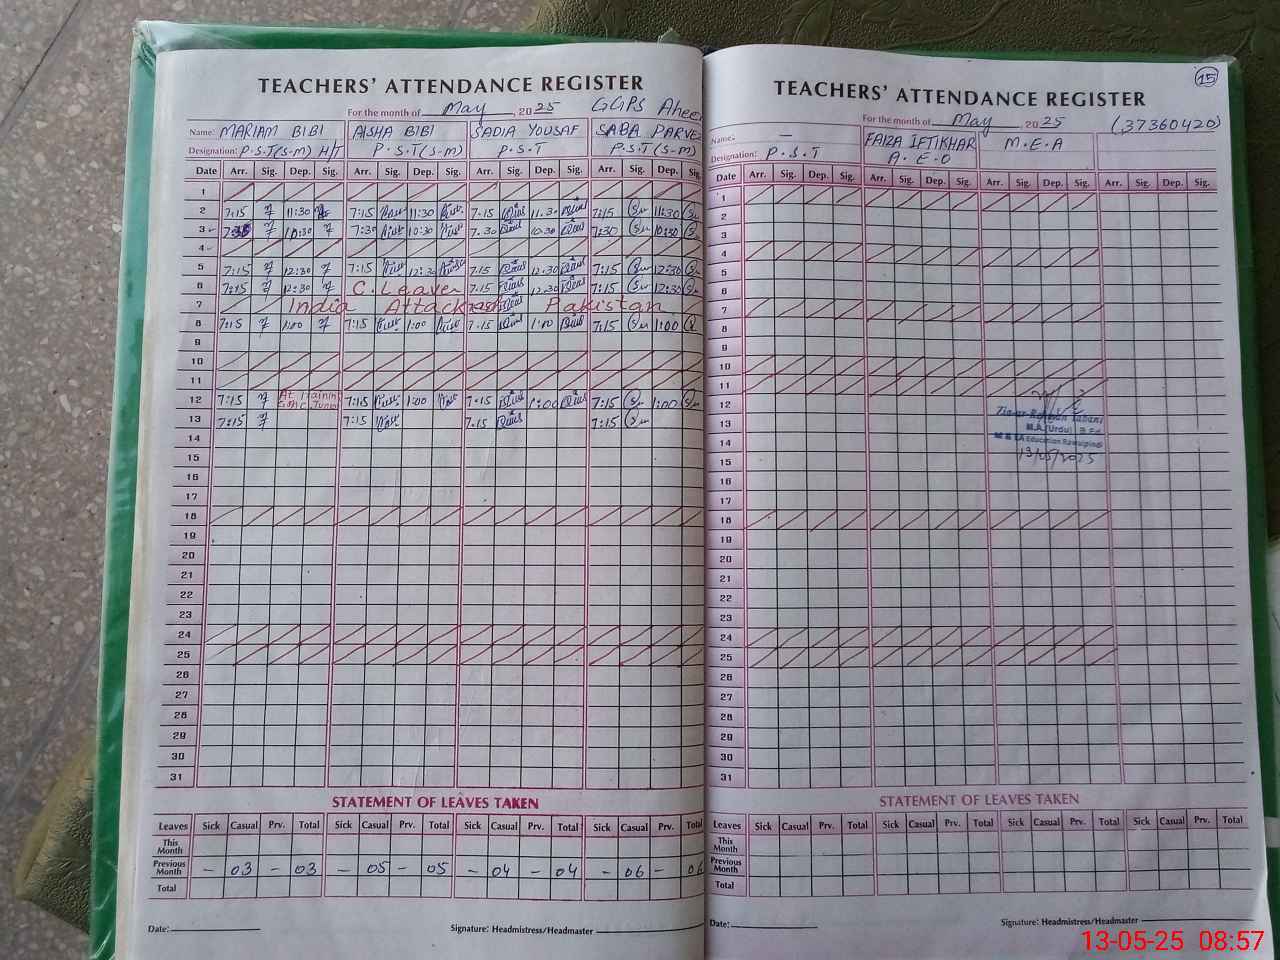 TEACHERS' ATTENDANCE REGISTER
For the month of May, 2025 GGPS
Name: MARIAM BIBI AISHA BIBI SADIA YOUSAF SABA PARVE
Designation: P.S.T(S-M) H/T P.S.T(S-M) P.S.T P.S.T(S-M)
Date Arr. Sig. Dep. Sig. Arr. Sig. Dep. Sig. Arr. Sig. Dep. Sig. Arr. Sig. Dep. Sig.
1
2 7:15 11:30 7:15 11:30 7.15 11.30 7:15 11:30
3 10:30 7:30 10:30 7.30 10.30 7:30 10:30
4
5 7:15 12:30 7:15 12:30 7.15 12.30 7:15 12:30
6 7:15 12:30 C.Leave 7.15 12.30 7:15 12:30
7 India Attack Pakistan
8 7:15 1:00 7:15 1:00 7.15 1:00 7:15 1:00
9
10
11
12 7:15 7:15 1:00 7.15 1:00 7:15 1:00
13 7:15 7:15 7.15 7:15
14
15
16
17
18
19
20
21
22
23
24
25
26
27
28
29
30
31
STATEMENT OF LEAVES TAKEN
Leaves Sick Casual Prv. Total Sick Casual Prv. Total Sick Casual Prv. Total Sick Casual Prv. Total
This Month
Previous Month - 03 - 03 - 05 - 05 - 04 - 04 - 06 - 06
Total
Date: Signature: Headmistress/Headmaster
15
TEACHERS' ATTENDANCE REGISTER
For the month of May, 2025 (37360420)
Name: - FAIZA IFTIKHAR M.E.A
Designation: P.S.T A.E.O
Date Arr. Sig. Dep. Sig. Arr. Sig. Dep. Sig. Arr. Sig. Dep. Sig. Arr. Sig. Dep. Sig.
1
2
3
4
5
6
7
8
9
10
11
12
13
M.A.(Urdu)
14 Education Rawalpindi
15 13/05/2025
16
17
18
19
20
21
22
23
24
25
26
27
28
29
30
31
STATEMENT OF LEAVES TAKEN
Leaves Sick Casual Prv. Total Sick Casual Prv. Total Sick Casual Prv. Total Sick Casual Prv. Total
This Month
Previous Month
Total
Date: Signature: Headmistress/Headmaster
13-05-25 08:57